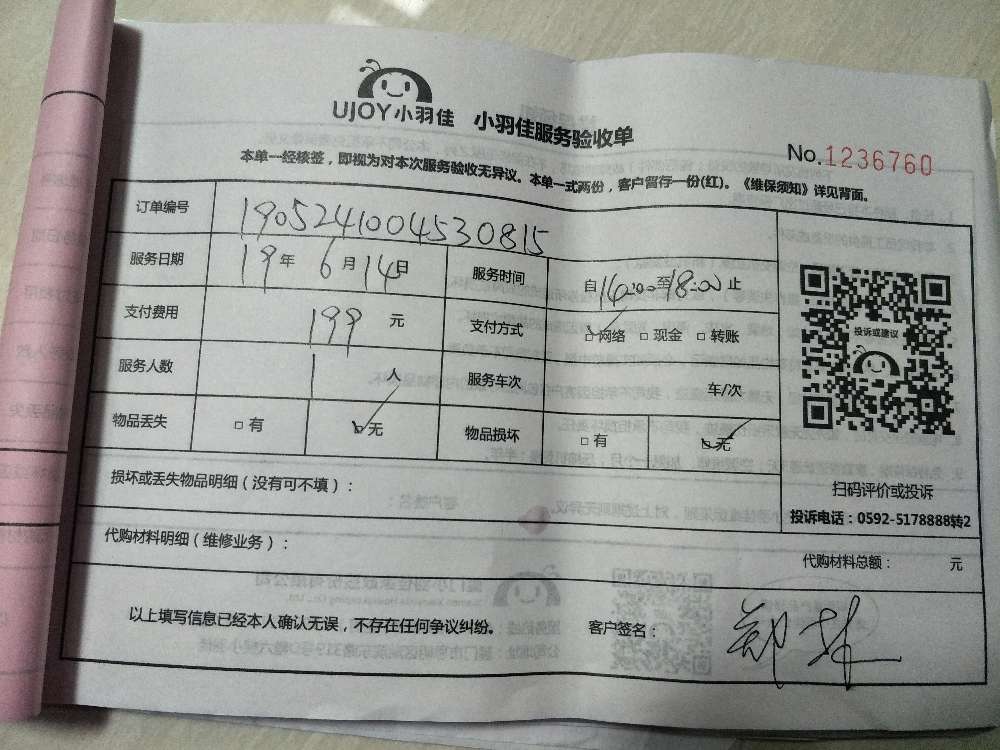 UJOY小羽佳 小羽佳服务验收单
No.1236760
本单一经核签，即视为对本次服务验收无异议。本单一式两份，客户留存一份(红)。《维保须知》详见背面。
订单编号 190524100453081５
服务日期 19年6月14日 服务时间 自14:00至18:00止
支付费用 199 元 支付方式 ☑网络 □现金 □转账
服务人数 1 人 服务车次 车/次
物品丢失 □有 ☑无 物品损坏 □有 ☑无
投诉或建议
扫码评价或投诉
投诉电话：0592-5178888转2
损坏或丢失物品明细（没有可不填）：
代购材料明细（维修业务）：
代购材料总额： 元
以上填写信息已经本人确认无误，不存在任何争议纠纷。 客户签名：